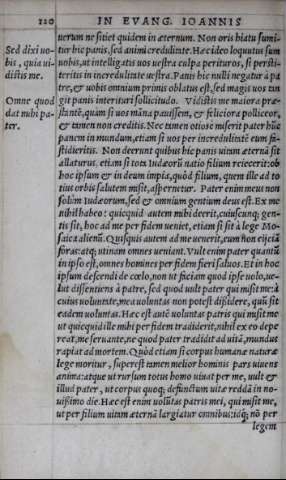 120 IN EVANG. IOANNIS
uerum ne sitiet quidem in æternum. Non oris hiatu sumi-
Sed dixi uo-
bis, quia ui-
distis me.
tur hic panis, sed animi credulitate. Hæc ideo loquutus sum
uobis, ut intelligatis uos uestra culpa perituros, si persti-
teritis in incredulitate uestra. Panis hic nulli negatur à pa
tre, & uobis omnium primis oblatus est, sed magis uos tan
Omne quod
dat mihi pa-
ter.
git panis interituri sollicitudo. Vidistis me maiora præ-
stantē, quàm si uos māna pauissem, & feliciora polliceor,
& tamen non creditis. Nec tamen otiose miserit pater hūc
panem in mundum, etiam si uos per incredulitatē eum fa-
stidieritis. Non deerunt quibus hic panis uitam æternā sit
allaturus, etiam si tota Iudæorū natio filium reiecerit: ob
hoc ipsum & in deum impia, quòd filium, quem ille ad to
tius orbis salutem misit, aspernetur. Pater enim meus non
solùm Iudæorum, sed & omnium gentium deus est. Ex me
nihil habeo: quicquid autem mihi decrit, cuiuscunq; gen-
tis sit, hoc ad me per fidem ueniet, etiam si sit à lege Mo-
saica alienū. Quisquis autem ad me uenerit, eum non eijciā
foras: atq; utinam omnes ueniant. Vult enim pater quantū
in ipso est, omnes homines per fidem fieri saluos. Et in hoc
ipsum descendi de cœlo, non ut faciam quod ipse uolo, ue-
lut dissentiens à patre, sed quod uult pater qui misit me: à
cuius uoluntate, mea uoluntas non potest dissidere, quū sit
eadem uoluntas. Hæc est autē uoluntas patris qui misit me
ut quicquid ille mihi per fidem tradiderit, nihil ex eo depe
reat, me seruante, ne quod pater tradidit ad uitā, mundus
rapiat ad mortem. Quòd etiam si corpus humanæ naturæ
lege moritur, superest tamen melior hominis pars uiuens
anima: atque ut rursum totus homo uiuat per me, uult &
illud pater, ut corpus quoq; defunctum uitæ reddā in no-
uissimo die. Hæc est enim uolūtas patris mei, qui misit me,
ut per filium uitam æternā largiatur omnibus: idq; nō per
legem